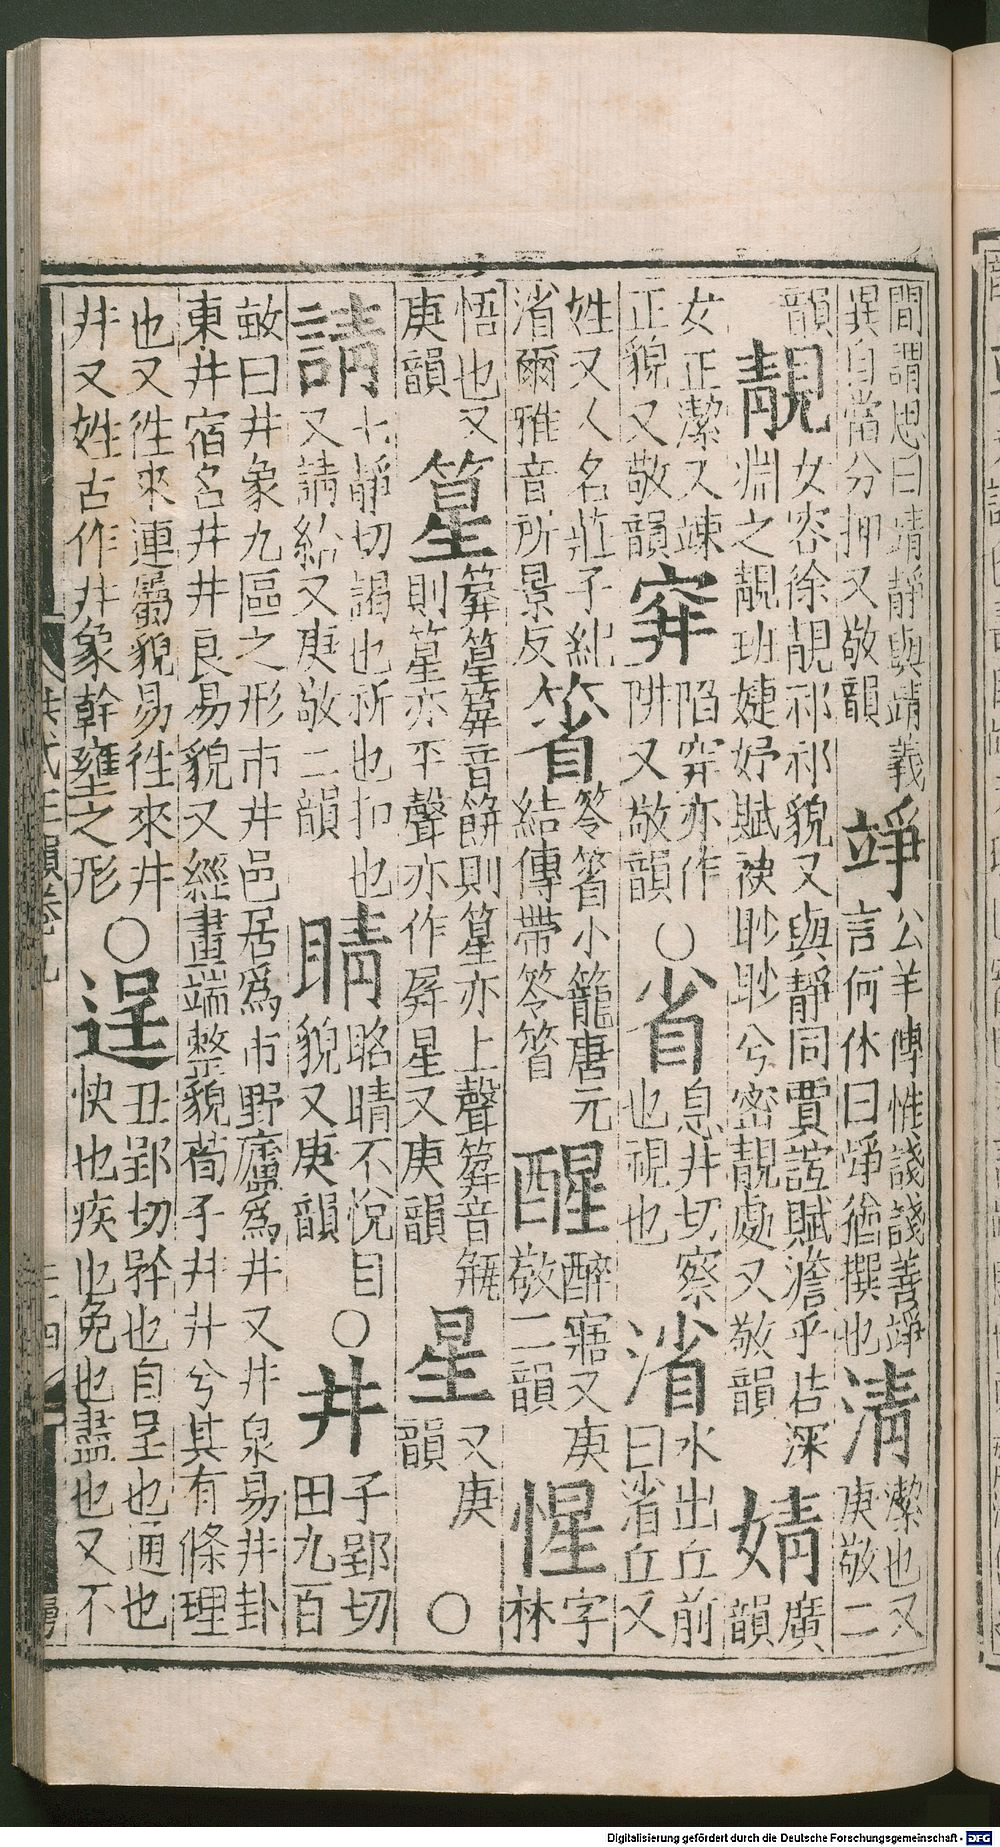 間謂思曰靖靜與靖義
異自當分押又敬韻
竫
公羊傳惟諓諓善竫
言何休曰竫猶撰也
清
潔也又
庚敬二
韻
靚
女容徐靚祁祁貌又與靜同賈誼賦澹乎若深
淵之靚班婕妤賦神眇眇兮密靚處又敬韻
婧
廣
韻
女正潔又竦
正貌又敬韻
穽
陷穽亦作
阱又敬韻
○
省
息井切察
也視也
渻
水出丘前
曰渻丘又
姓又人名莊子紀
渻爾雅音所景反
箵
笭箵小籠唐元
結傳帶笭箵
醒
醉寤又庚
敬二韻
惺
字
林
悟也又
庚韻
篂
箳篂箳音餠則篂亦上聲箳音缾
則篂亦平聲亦作屏星又庚韻
星
又庚
韻
○
請
七靜切謁也祈也扣也
又請給又庚敬二韻
睛
眳睛不悅目
貌又庚韻
○
井
子郢切
田九百
畝曰井象九區之形市井邑居爲市野廬爲井又井泉易井卦
東井宿名井井良易貌又經畫端整貌荀子井井兮其有條理
也又徃來連屬貌易徃來井
井又姓古作丼象幹壅之形
○
逞
丑郢切矜也自呈也通也
快也疾也免也盡也又不